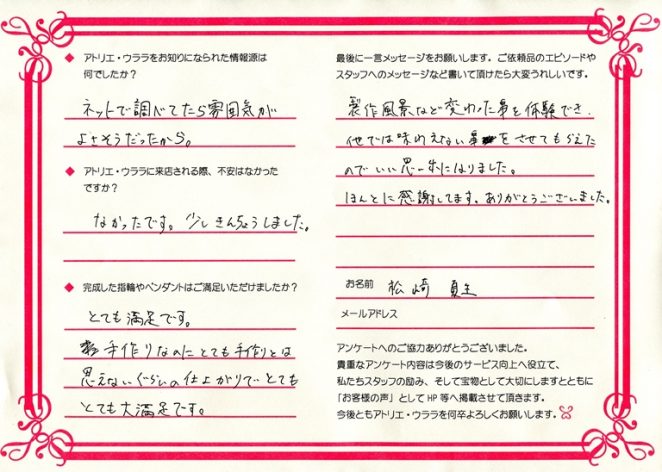 ◆ アトリエ・ウララをお知りになられた情報源は
何でしたか？
ネットで調べてたら雰囲気が
よさそうだったから。
◆ アトリエ・ウララに来店される際、不安はなかった
ですか？
なかったです。少しきんちょうしました。
◆ 完成した指輪やペンダントはご満足いただけましたか？
とても満足です。
手作りなのにとても手作りとは
思えないぐらいの仕上がりでとても
とても大満足です。
最後に一言メッセージをお願いします。ご依頼品のエピソードや
スタッフへのメッセージなど書いて頂けたら大変うれしいです。
製作風景など変わった事を体験でき、
他では味わえない事をさせてもらえた
のでいい思い出になりました。
ほんとに感謝してます。ありがとうございました。
お名前 松崎
メールアドレス
アンケートへのご協力ありがとうございました。
貴重なアンケート内容は今後のサービス向上へ役立て、
私たちスタッフの励み、そして宝物として大切にしますとともに
「お客様の声」としてHP等へ掲載させて頂きます。
今後ともアトリエ・ウララを何卒よろしくお願いします。